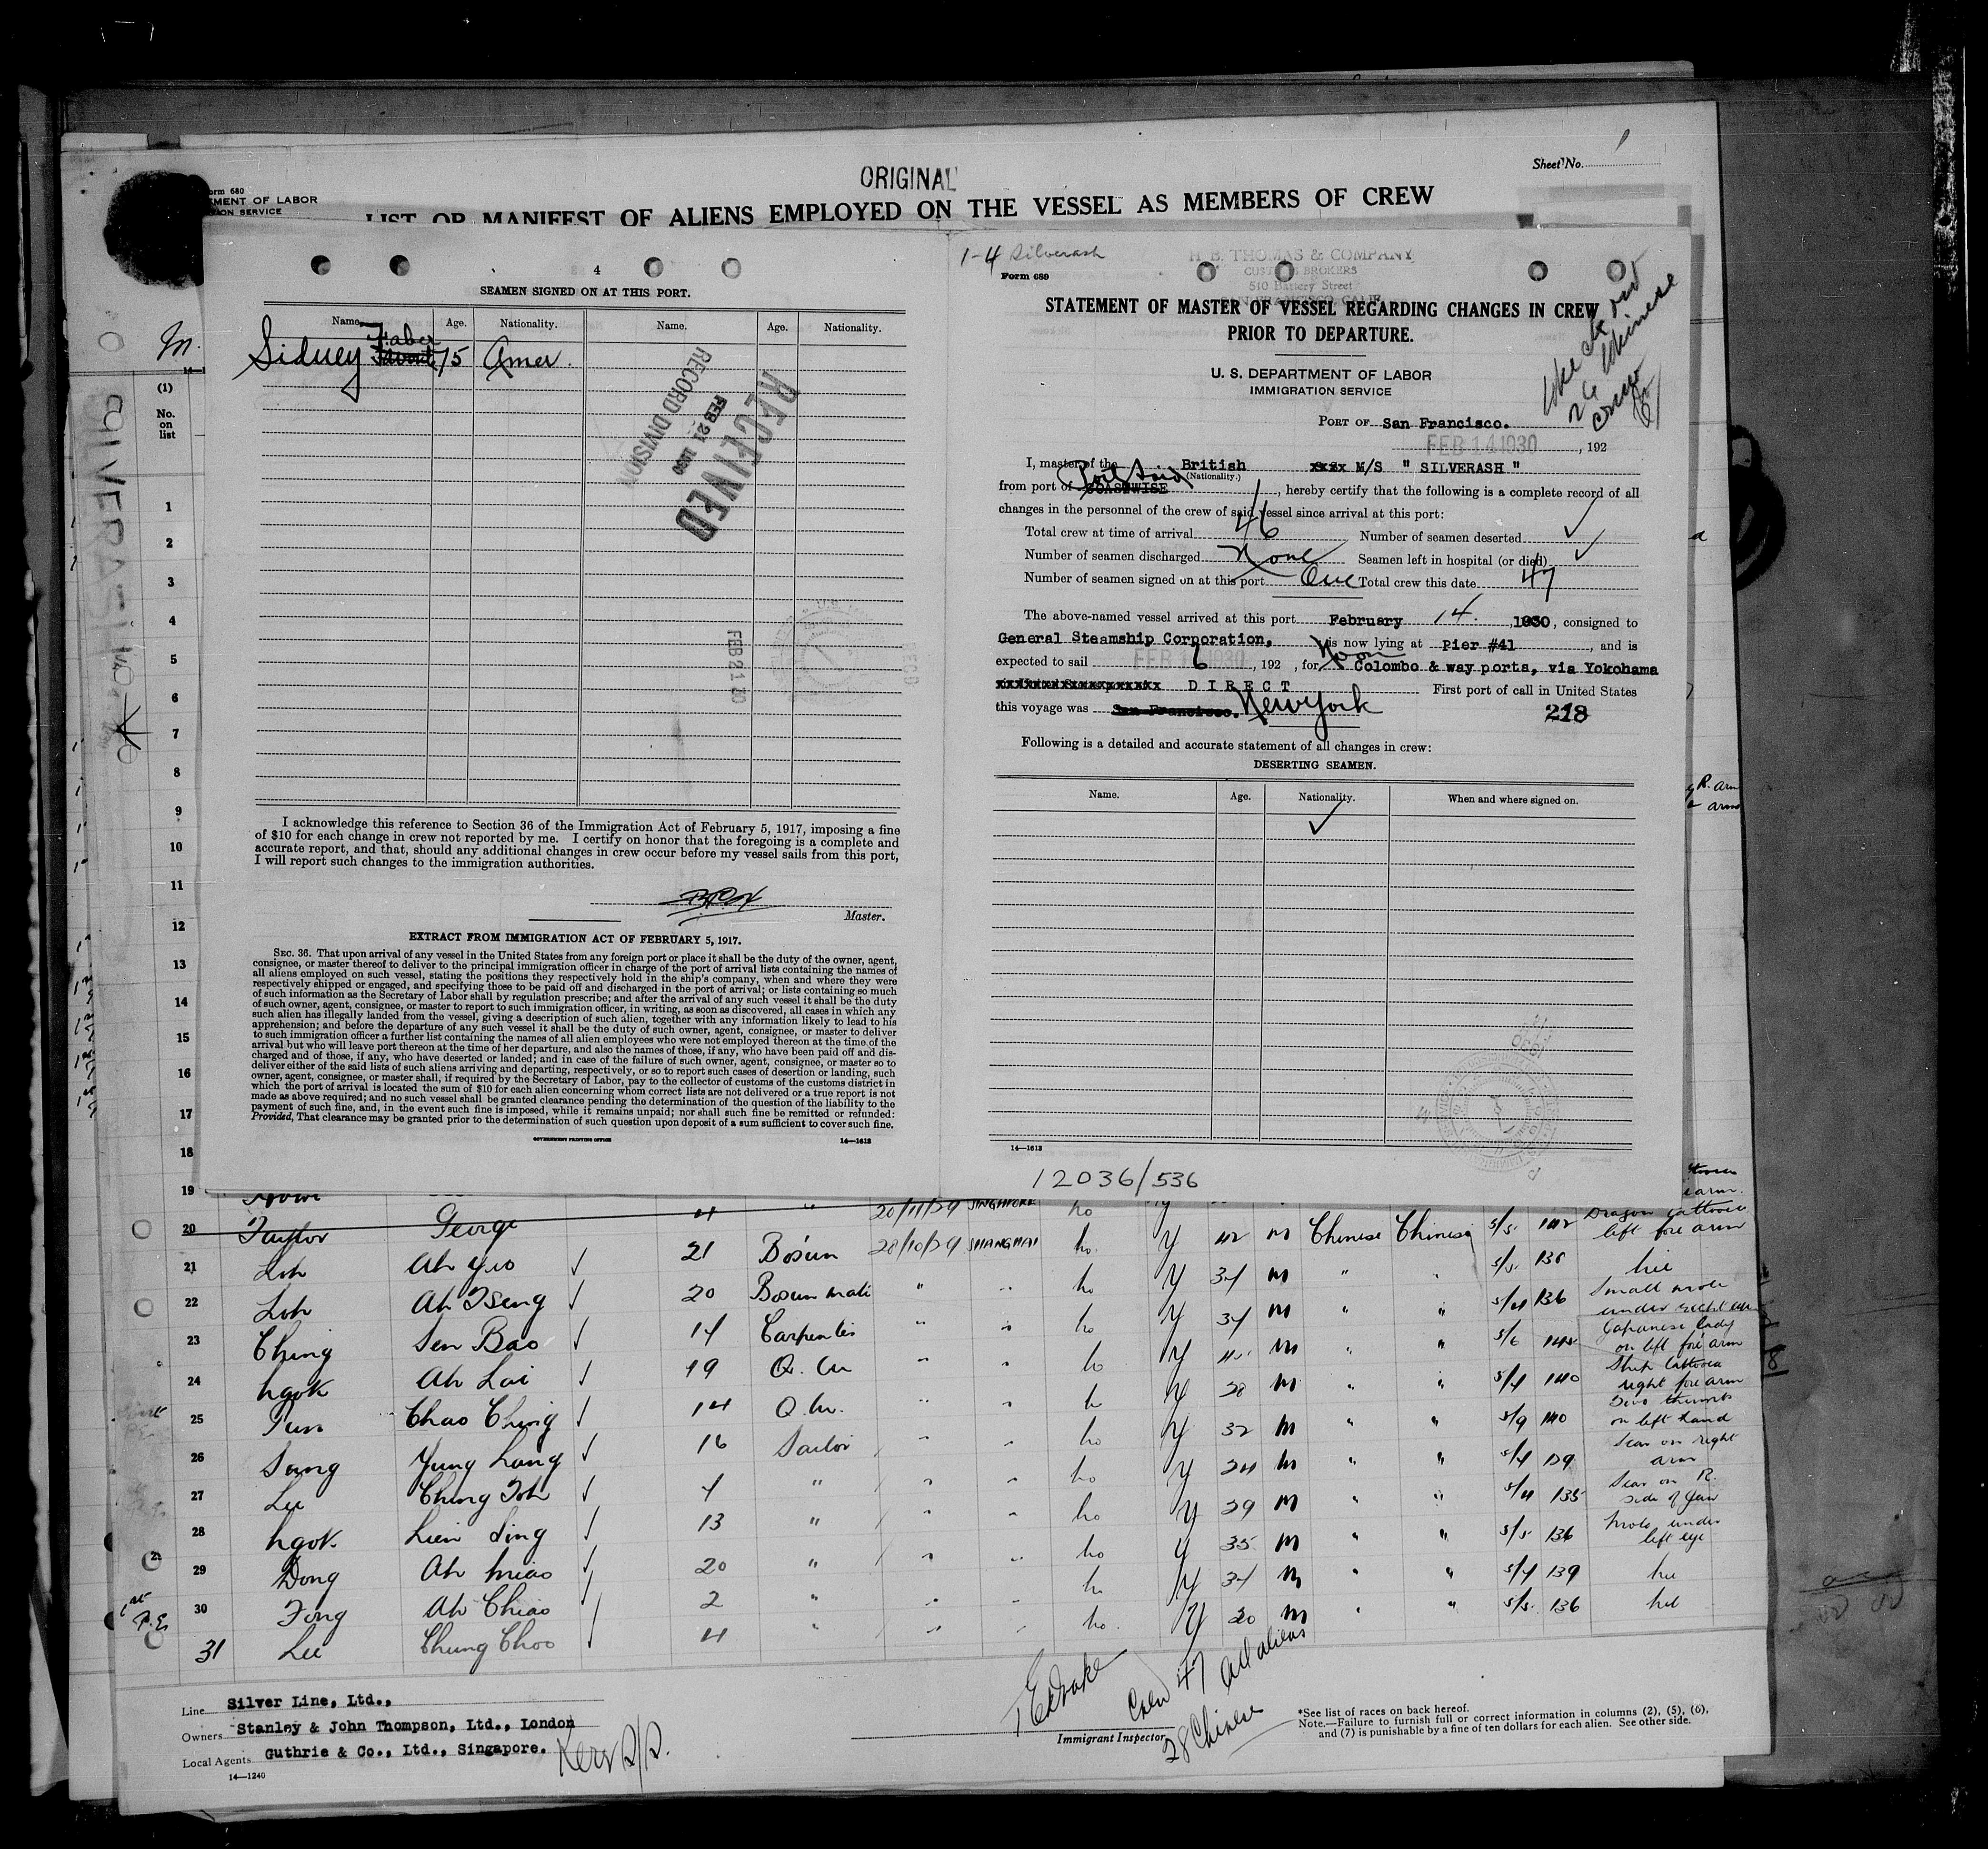 Sheet No. 1
ORIGINAL
orm 680
MENT OF LABOR
ION SERVICE
LIST OR MANIFEST OF ALIENS EMPLOYED ON THE VESSEL AS MEMBERS OF CREW
(1)
No.
on
list
1
2
3
4
5
6
7
8
9
10
11
12
13
14
15
16
17
18
19
4
SEAMEN SIGNED ON AT THIS PORT.
Name. Age. Nationality. Name. Age. Nationality.
Faber
Sidney 15 Amer.
RECEIVED
FEB 21 1930
RECORD DIVISION
FEB 21 30
I acknowledge this reference to Section 36 of the Immigration Act of February 5, 1917, imposing a fine
of $10 for each change in crew not reported by me. I certify on honor that the foregoing is a complete and
accurate report, and that, should any additional changes in crew occur before my vessel sails from this port,
I will report such changes to the immigration authorities.
Master.
EXTRACT FROM IMMIGRATION ACT OF FEBRUARY 5, 1917.
SEC. 36. That upon arrival of any vessel in the United States from any foreign port or place it shall be the duty of the owner, agent,
consignee, or master thereof to deliver to the principal immigration officer in charge of the port of arrival lists containing the names of
all aliens employed on such vessel, stating the positions they respectively hold in the ship's company, when and where they were
respectively shipped or engaged, and specifying those to be paid off and discharged in the port of arrival; or lists containing so much
of such information as the Secretary of Labor shall by regulation prescribe; and after the arrival of any such vessel it shall be the duty
of such owner, agent, consignee, or master to report to such immigration officer, in writing, as soon as discovered, all cases in which any
such alien has illegally landed from the vessel, giving a description of such alien, together with any information likely to lead to his
apprehension; and before the departure of any such vessel it shall be the duty of such owner, agent, consignee, or master to deliver
to such immigration officer a further list containing the names of all alien employees who were not employed thereon at the time of the
arrival but who will leave port thereon at the time of her departure, and also the names of those, if any, who have been paid off and dis-
charged and of those, if any, who have deserted or landed; and in case of the failure of such owner, agent, consignee, or master so to
deliver either of the said lists of such aliens arriving and departing, respectively, or so to report such cases of desertion or landing, such
owner, agent, consignee, or master shall, if required by the Secretary of Labor, pay to the collector of customs of the customs district in
which the port of arrival is located the sum of $10 for each alien concerning whom correct lists are not delivered or a true report is not
made as above required; and no such vessel shall be granted clearance pending the determination of the question of the liability to the
payment of such fine, and, in the event such fine is imposed, while it remains unpaid; nor shall such fine be remitted or refunded:
Provided, That clearance may be granted prior to the determination of such question upon deposit of a sum sufficient to cover such fine.
GOVERNMENT PRINTING OFFICE 14—1613
1-4 Silverash
Form 689
H. B. THOMAS & COMPANY
CUSTOMS BROKERS
510 Battery Street
SAN FRANCISCO, CALIF.
STATEMENT OF MASTER OF VESSEL REGARDING CHANGES IN CREW
PRIOR TO DEPARTURE.
U. S. DEPARTMENT OF LABOR
IMMIGRATION SERVICE
26 Chinese
crew
PORT OF San Francisco.
FEB 14 1930, 192
I, master of the British xxxx M/S " SILVERASH "
(Nationality.)
Port Said
from port of COASTWISE, hereby certify that the following is a complete record of all
changes in the personnel of the crew of said vessel since arrival at this port:
Total crew at time of arrival 46 Number of seamen deserted
Number of seamen discharged None Seamen left in hospital (or died)
Number of seamen signed on at this port One Total crew this date 47
The above-named vessel arrived at this port February 14. 1930, consigned to
General Steamship Corporation, is now lying at Pier #41, and is
expected to sail FEB 16 1930, 192 , for Noon Colombo & way ports, via Yokohama
xxxxxxxxxxxxxxxxxx DIRECT First port of call in United States
this voyage was San Francisco. New York 218
Following is a detailed and accurate statement of all changes in crew:
DESERTING SEAMEN.
Name. Age. Nationality. When and where signed on.
14—1613
12036/536
20 Taylor George 4 " 20/11/29 SINGAPORE
21 Loh Ah Yuo 21 Bosun 28/10/29 SHANGHAI no. Y 42 M Chinese Chinese 5/5 142 Dragon tattooed left fore arm
22 Loh Ah Tseng 20 Bosun mate " " no Y 34 M " " 5/5 138 nil
23 Ching Sen Bao 14 Carpenter " " no Y 34 M " " 5/4 136 Small mole under right eye
24 Ngok Ah Lai 19 Q. M " " no Y 45 M " " 5/6 145 Japanese lady on left fore arm
25 Pun Chao Ching 14 Q.M. " " no Y 28 M " " 5/4 140 Ship tattooed right fore arm
26 Sang Yung Lang 16 Sailor " " no Y 32 M " " 5/9 140 Two thumbs on left hand
27 Lee Ching Toh 4 " " " no Y 24 M " " 5/4 129 Scar on right arm
28 Ngok Lien Sing 13 " " " no Y 29 M " " 5/4 135 Scar on R. side of Jaw
29 Dong Ah Miao 20 " " " no Y 35 M " " 5/5 136 Mole under left eye
30 Fong Ah Chiao 2 " " " no Y 34 M " " 5/4 139 nil
31 Lee Chung Choo 4 " " " no. Y 20 M " " 5/5 136 nil
Line Silver Line, Ltd.,
Owners Stanley & John Thompson, Ltd., London
Local Agents Guthrie & Co., Ltd., Singapore.
14—1240
Kerr S/S.
Immigrant Inspector
Crew 47 All aliens
28 Chinese
*See list of races on back hereof.
Note.—Failure to furnish full or correct information in columns (2), (5), (6),
and (7) is punishable by a fine of ten dollars for each alien. See other side.